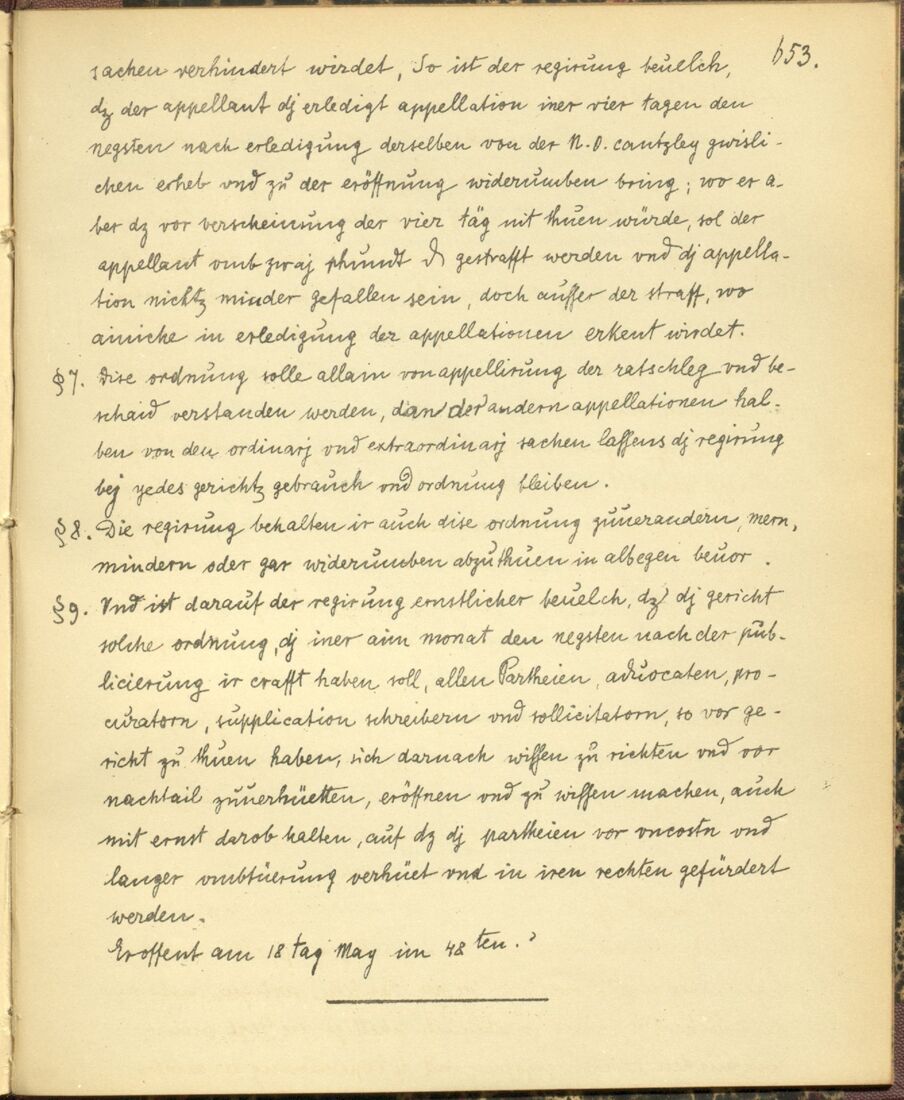 653.
sachen verhindert wirdet, So ist der regirung beuelch,
dz der appellant dj erledigt appellation iner vier tagen den
negsten nach erledigung derselben von der N. O. cantzley gwisli-
chen erheb vnd zu der eröffnung widerumben bring; wo er a-
ber dz vor verscheinung der vier täg nit thuen würde, sol der
appellant vmb zwaj phundt ₰ gestrafft werden vnd dj appella-
tion nichtz minder gefallen sein, doch ausser der straff, wo
ainiche in erledigung der appellationen erkent wirdet.
§ 7. Dise ordnung solle allain von appellirung der ratschleg vnd be-
schaid verstanden werden, dan der andern appellationen hal-
ben von den ordinarj vnd extraordinarj sachen lassens dj regirung
bej yedes gerichtz gebrauch vnd ordnung bleiben.
§ 8. Die regirung behalten ir auch dise ordnung zuuerandern, mern,
mindern oder gar widerumben abzuthuen in albegen beuor.
§ 9. Vnd ist darauf der regirung ernstlicher beuelch, dz dj gericht
solche ordnung, dj iner aim monat den negsten nach der pub-
licierung ir crafft haben soll, allen Partheien, aduocaten, pro-
curatorn, supplication schreibern vnd sollicitatorn, so vor ge-
richt zu thuen haben, sich darnach wissen zu richten vnd vor
nachtail zuuerhüetten, eröffnen vnd zu wissen machen, auch
mit ernst darob halten, auf dz dj partheien vor vncostn vnd
langer vmbtüerung verhüet vnd in iren rechten gefürdert
werden.
Eroffent am 18 tag May im 48 ten.